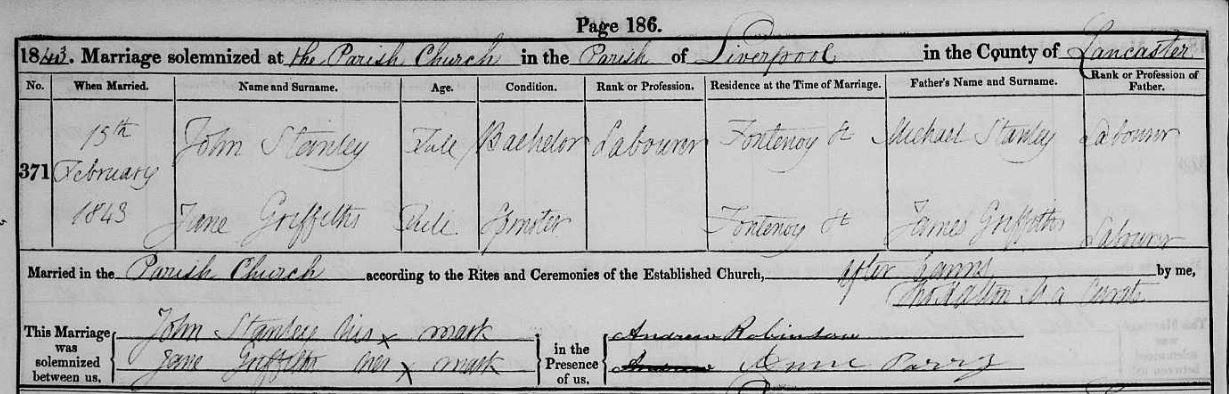 Page 186.
1843. Marriage solemnized at the Parish Church in the Parish of Liverpool in the County of Lancaster
No. When Married. Name and Surname. Age. Condition. Rank or Profession. Residence at the Time of Marriage. Father's Name and Surname. Rank or Profession of Father.
371 15th February 1843 John Stanley Full Bachelor Labourer Fontenoy St Michael Stanley Labourer
Jane Griffiths Full Spinster Fontenoy St James Griffiths Labourer
Married in the Parish Church according to the Rites and Ceremonies of the Established Church, after banns by me,
Curate
This Marriage was solemnized between us, John Stanley his x mark in the Presence of us. Andrew Robinson
Jane Griffiths her x mark Anne Parry